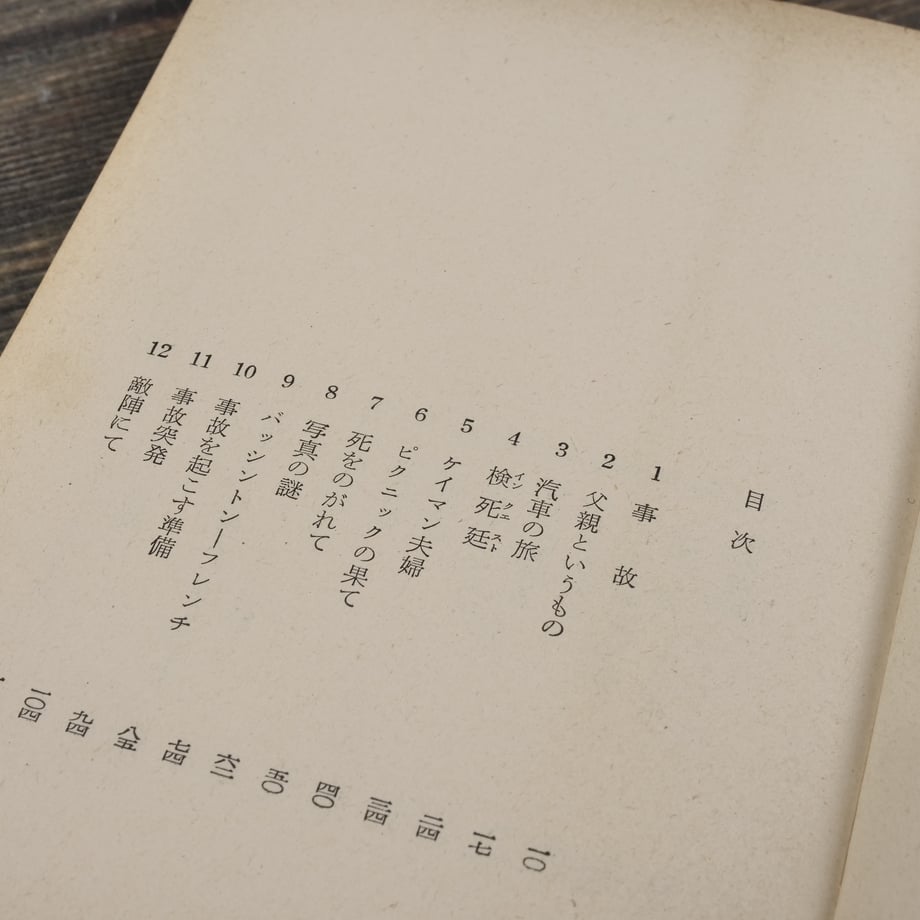 目次
1 事故 一〇
2 父親というもの 一七
3 汽車の旅 二四
4 検死廷 インクエスト 三四
5 ケイマン夫婦 四〇
6 ピクニックの果て 五〇
7 死をのがれて 六二
8 写真の謎 七四
9 バッシントン―フレンチ 八五
10 事故を起こす準備 九四
11 事故突発 一〇四
12 敵陣にて